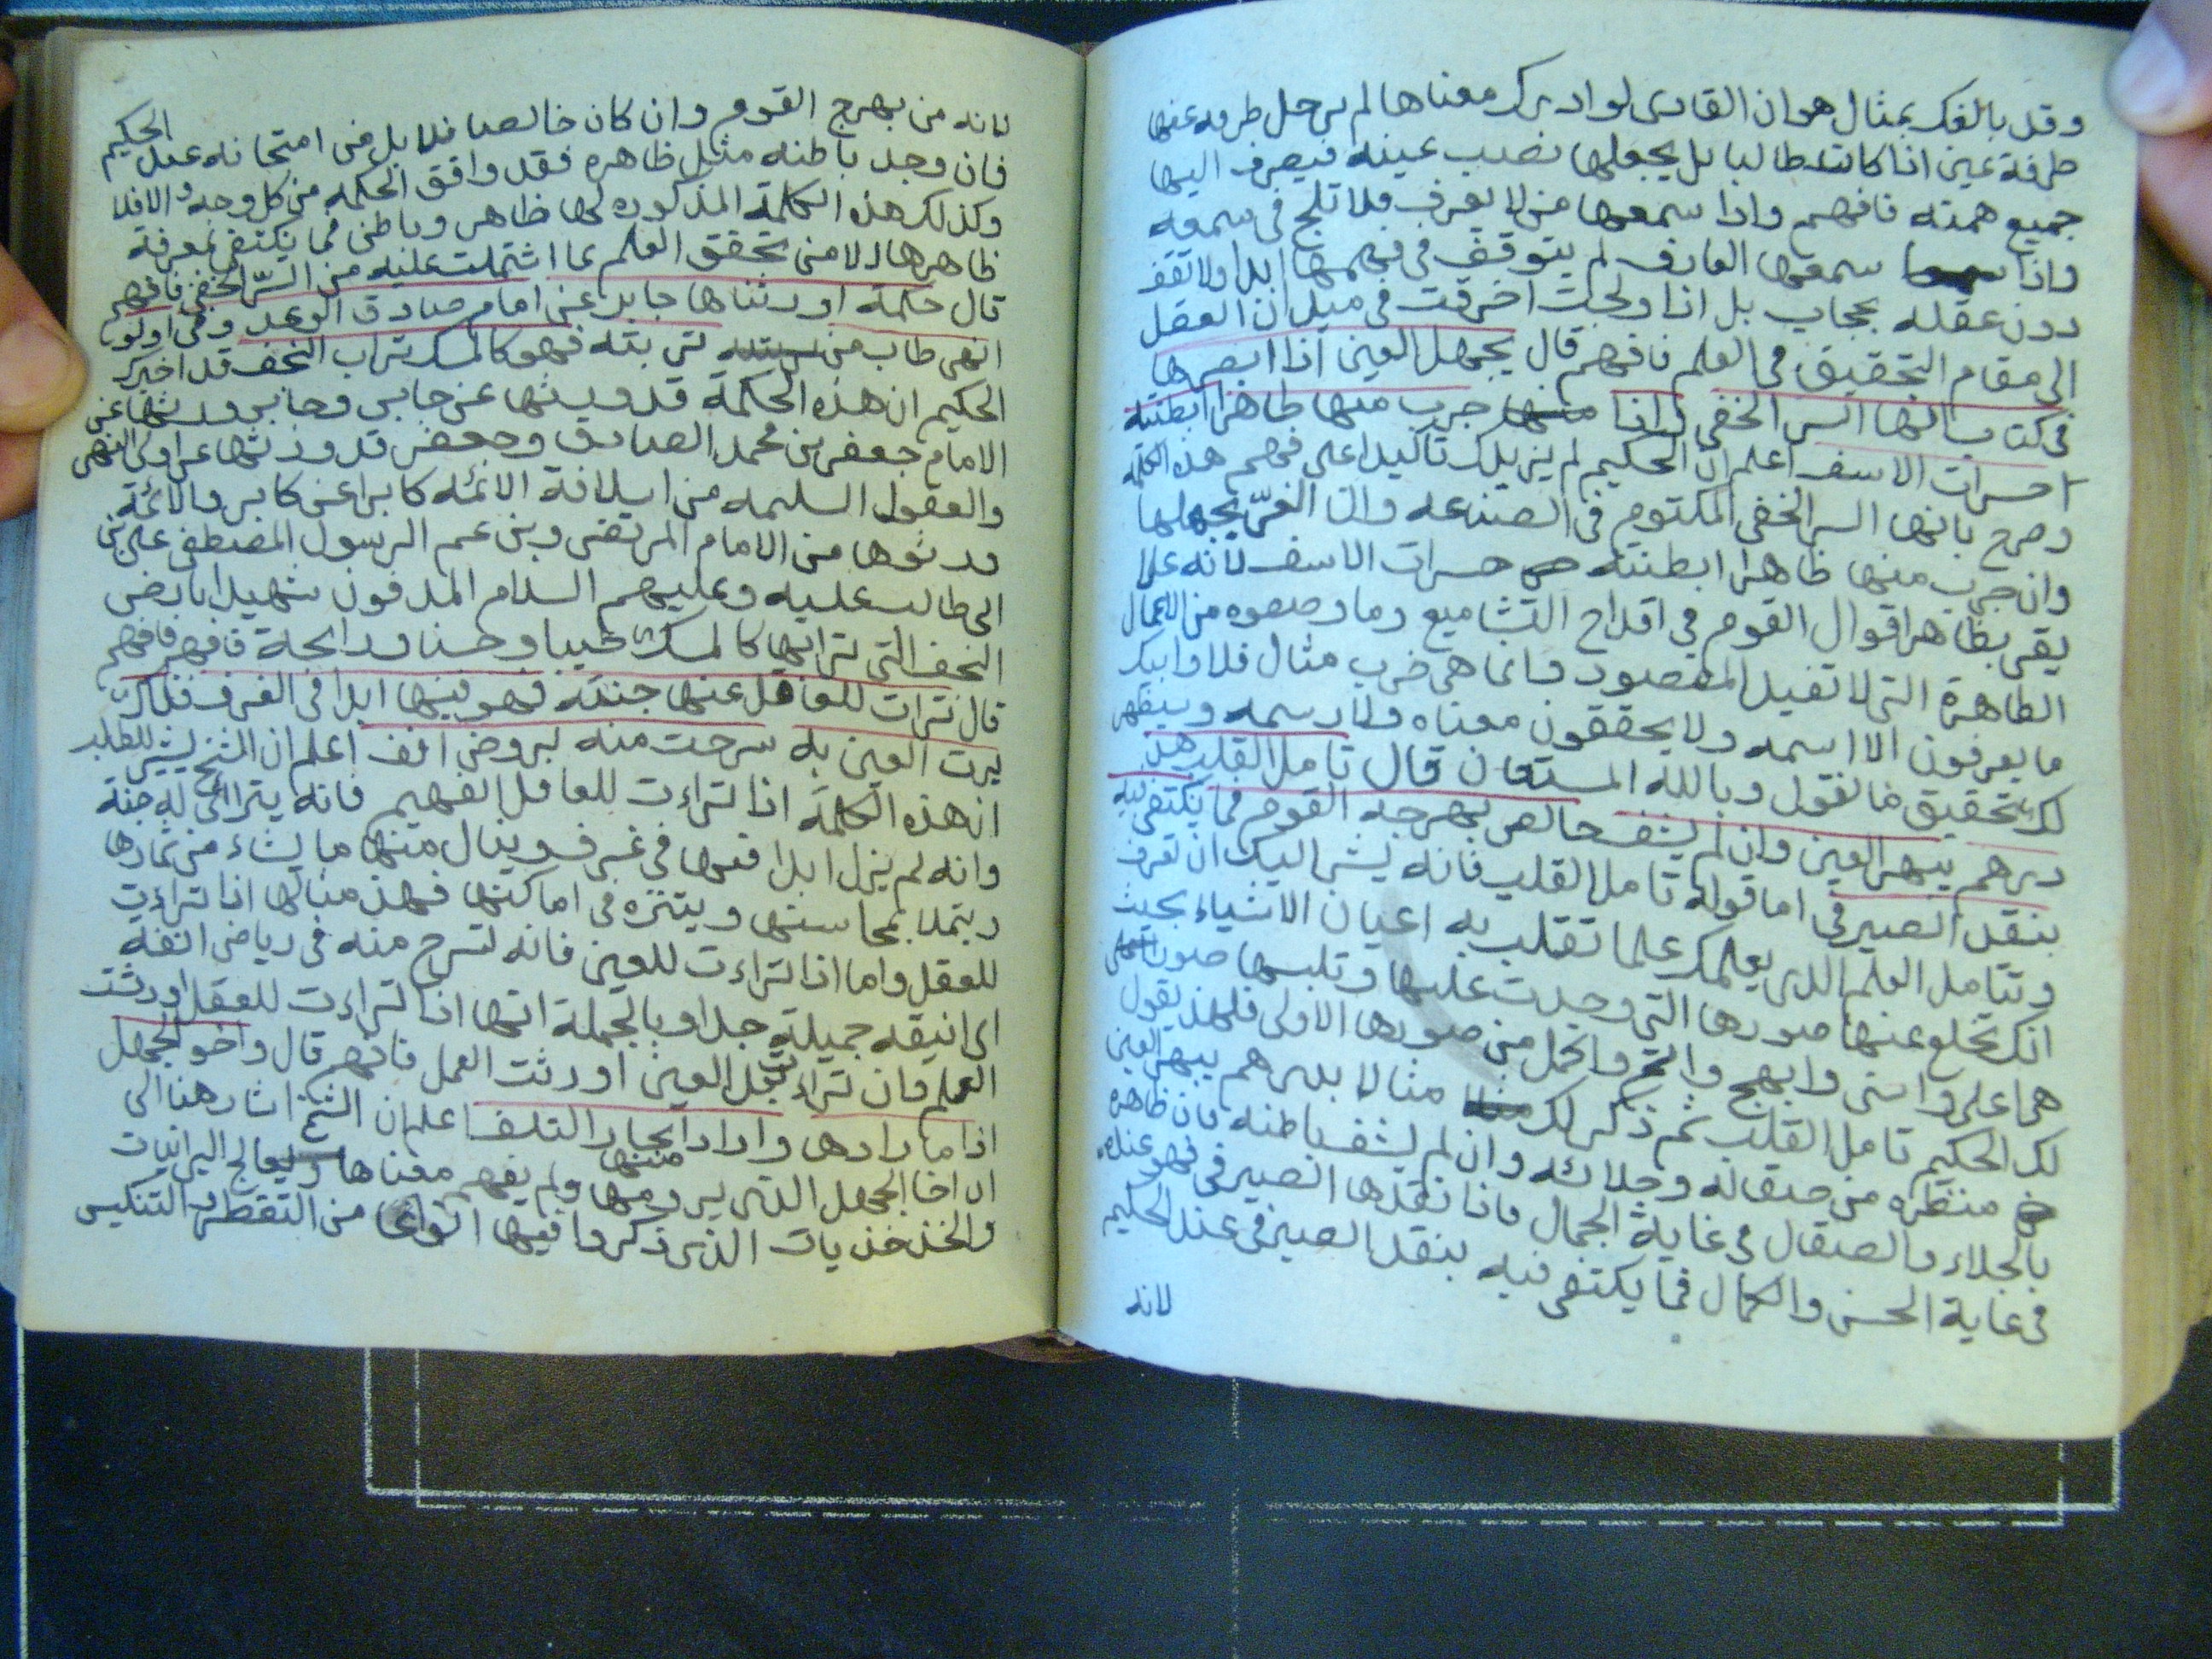 وقد بالفكر بمثال هو ان القارى لو ادرك معناها لم يرحل طرفه عنها
طرفة عين اذا كان طالبا بل يجعلها نصب عينه فيصرف اليها
جميع همته فافهم واذا سمعها من لا يعرف فلا تلج فى سمعه
واذا سمعها العارف لم يتوقف فى فهمها ابدا ولا تقف
دون عقله بحجاب بل اذا ولجت اخرقت فى ميدان العقل
الى مقام التحقيق فى العلم فافهم قال يجهل العين اذا ابصرها
فى كتاب انها السر الخفى واذا جرب منها ظاهرا ابطنته
حسرات الاسف اعلم ان الحكيم لم يزيدك تاكيدا على فهم هذه الكلمه
وصرح بانها السر الخفى المكتوم فى الصنعه وان الغر يجهلها
وان جرب منها ظاهرا ابطنته حسرات الاسف لانه عملا
يقى بظاهر اقوال القوم فى اقداح التشاميع وما وصفوه من الاعمال
الظاهرة التى لا تفيد المقصود وانما هى ضرب مثال فلا وابيك
ما يعرفون الا اسمه ولا يحققون معناه ولا رسمه وسيظهر
لك تحقيق ما نقول وبالله المستعان قال تامل القلب هل
درهم يبهر العين وان لم يشف خالص بهرجه القوم فما يكتفى فيه
بنقد الصيرفى اما قوله تامل القلب فانه يشير اليك ان تعرف
وتتامل العلم الذى يعلمك علما تقلب به اعيان الاشياء بحيث
انك تخلع عنها صورها التى وجدت عليها وتلبسها صورا
هى اعلى واسنى وابهج واتم واكمل من صورها الاولى فلهذا يقول
لك الحكيم تامل القلب ثم ذكر لك مثالا بدرهم يبهر العين
منظره من صقاله وجلائه وان لم يشف باطنه فان ظاهره
بالجلاء والصقال فى غاية الجمال فاذا نقدها الصيرفى فهو عنده
فى غاية الحسن والكمال فما يكتفى فيه بنقد الصيرفى عند الحكيم
لانه
لانه من بهرج القوم وان كان خالصا فلا بد من امتحانه عند الحكيم
فان وجد باطنه مثل ظاهره فقد وافق الحكمه من كل وجه والا فلا
وكذلك هذه الكلمة المذكوره لها ظاهر وباطن فما يكتفى بمعرفة
ظاهرها الا من تحقق العلم بما اشتملت عليه من السر الخفى فافهم
قال حكمة اورثناها جابر عن امام صادق الوعد وفى اولوا
النهى طاب من تربته فهو كالمسك تراب النجف قد اخبرك
الحكيم ان هذه الحكمة قد ورثها عن جابر وجابر ورثها عن
الامام جعفر بن محمد الصادق وجعفر قد ورثها عن اولى النهى
والعقول السليمه من اسلافه الائمه كابرا عن كابر والائمة
ورثوها من الامام المرتضى وبن عم الرسول المصطفى على بن
ابى طالب عليه وعليهم السلام المدفون شهيدا بارض
النجف التى ترابها كالمسك طيبا وحسنا ورائحة فافهم فافهم
قال تراءت للعاقل عنها جنته فهو فيها ابدا فى الغرف فلك
يرت العين به سرحت منه لروض انف اعلم ان الشيخ يشير للطالب
ان هذه الكلمة اذا تراءت للعاقل الفهيم فانه يتراائ له جنة
وانه لم يزل ابدا فيها فى غرف وينال منها ما يشاء من ثمارها
ويتملا بمحاسنها ويتنزه فى اماكنها فهذ مثالها اذا تراءت
للعقل واما اذا تراءت للعين فانه تسرح منه فى رياض انفة
اى انيقه جميلة جدا وبالجملة انها اذا تراءت للعقل اورثت
العلم وان تراءت للعين اورثت العمل فافهم قال واخو الجهل
اذا ما رادها وارادا يجاد التلف اعلم ان الشيخ اشار هنا الى
ان اخا الجهل الذى يرومها ولم يفهم معناها ويعالج البرانيات
والخذخذيات الذى ذكروا فيها انواعا من التقطير والتنكيس